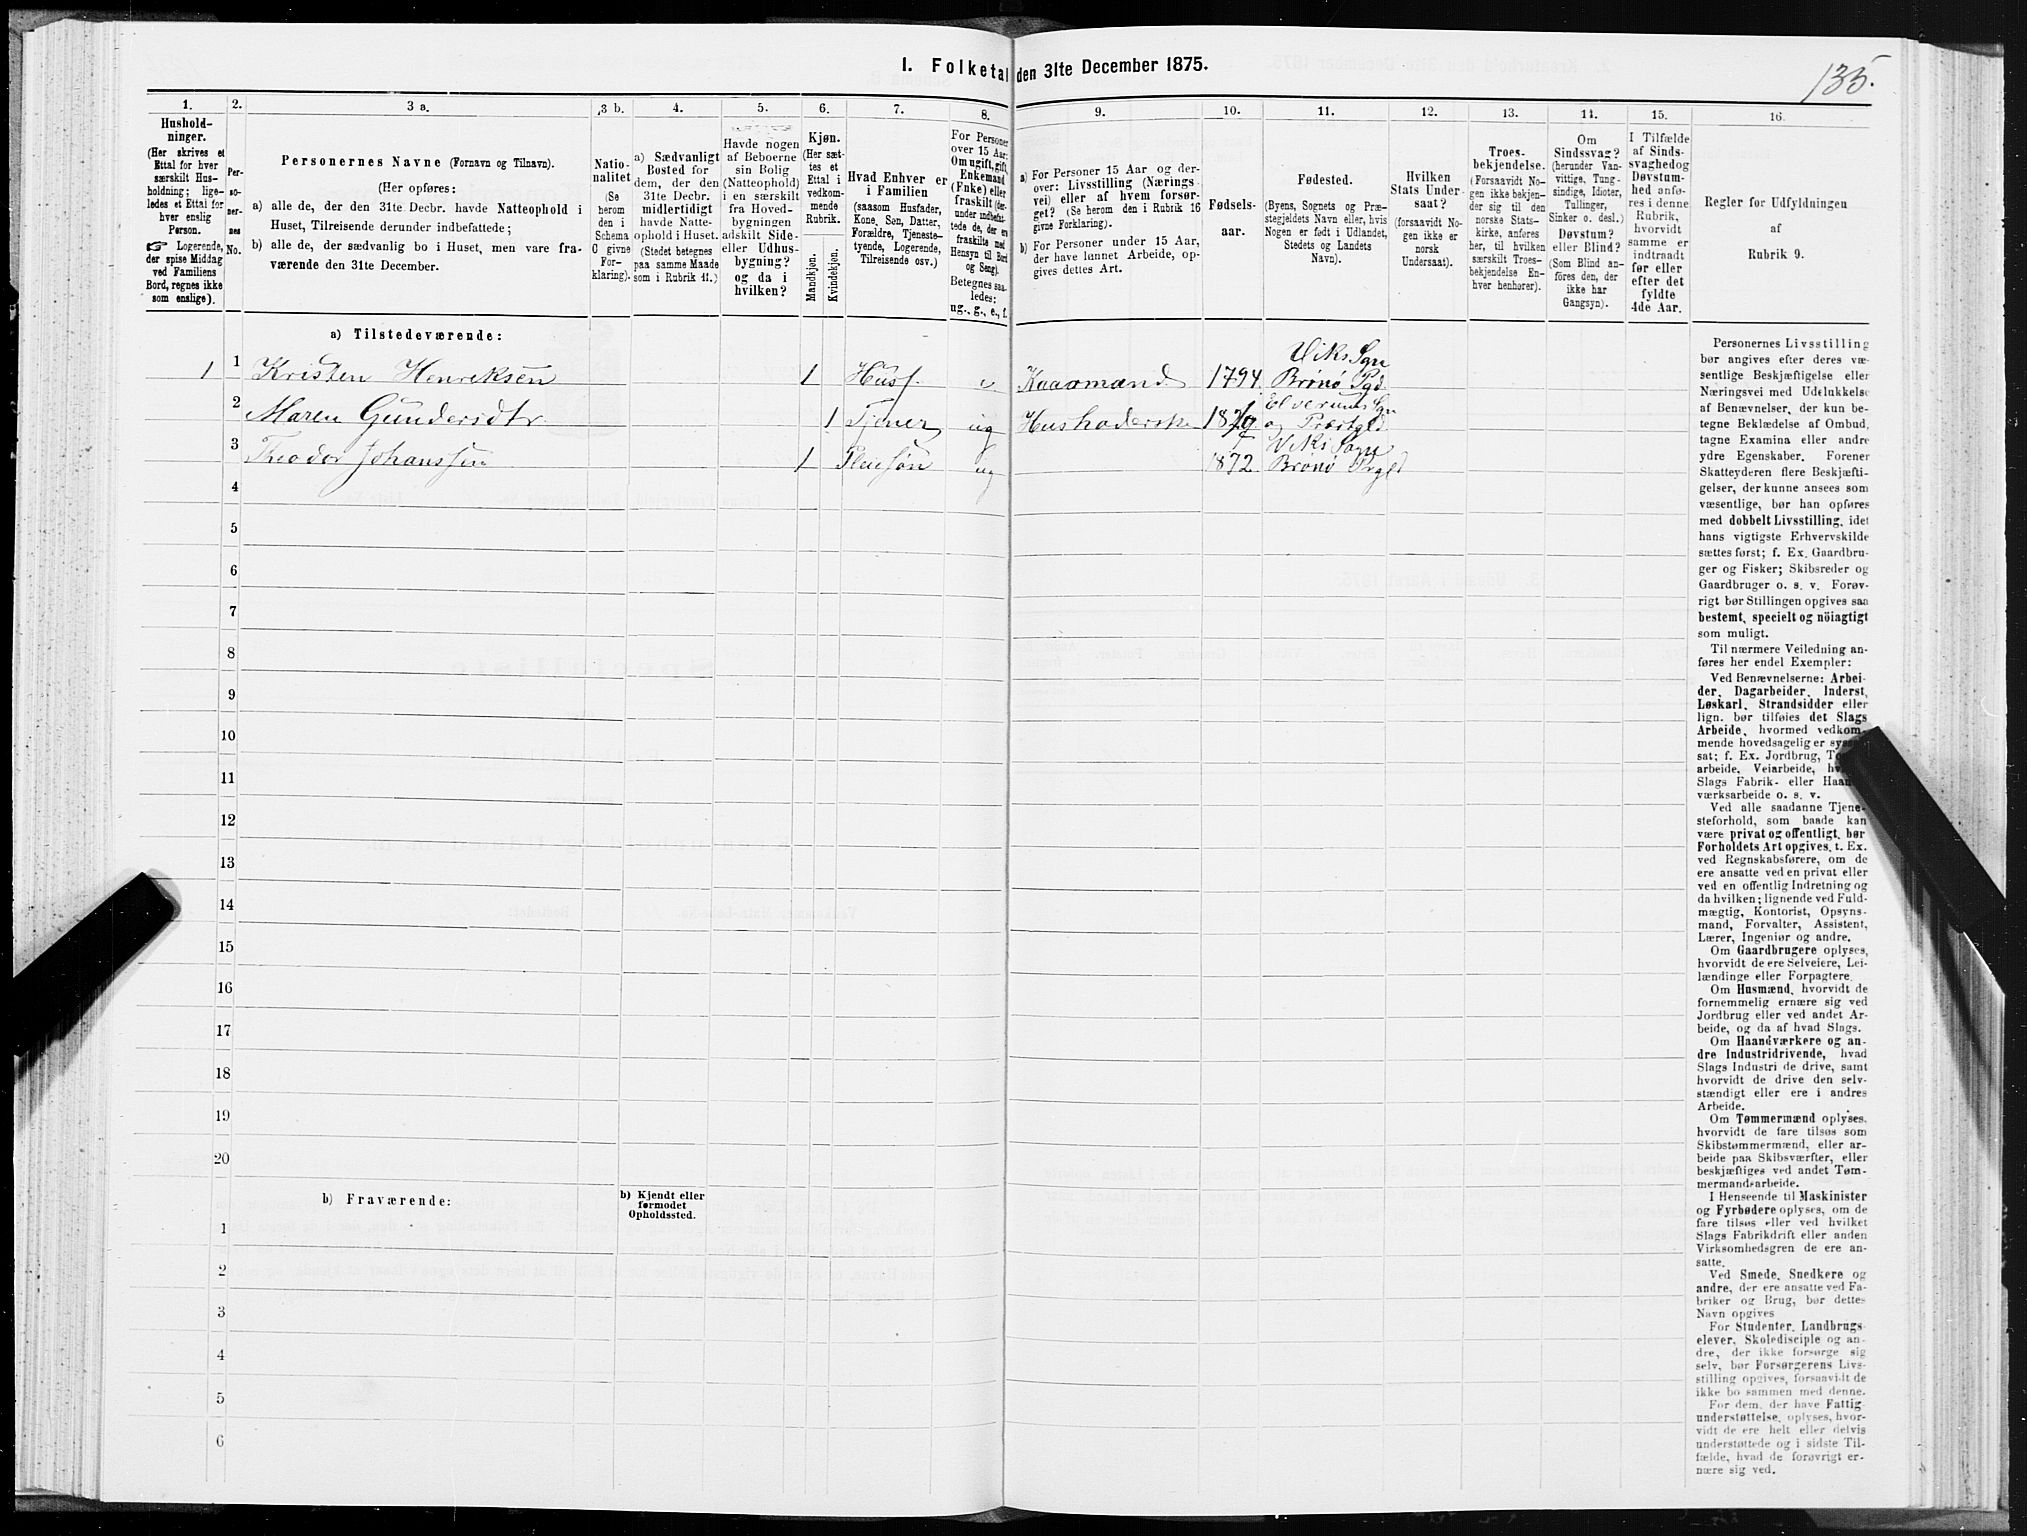 I. Folketal den 31te December 1875.
135.
1.
Hushold-
ninger.
(Her skrives et
Ettal for hver
særskilt Hus-
holdning; lige-
ledes et Ettal for
hver enslig
Person.
☞ Logerende,
der spise Middag
ved Familiens
Bord, regnes ikke
som enslige).
2.
Per-
so-
ner-
nes
No.
3 a.
Personernes Navne (Fornavn og Tilnavn).
(Her opføres:
a) alle de, der den 31te Decbr. havde Natteophold i
Huset, Tilreisende derunder indbefattede;
b) alle de, der sædvanlig bo i Huset, men vare fra-
værende den 31te December.
3 b.
Natio-
nalitet
(Se
herom
den i
Schema
O givne
For-
klaring).
4.
a) Sædvanligt
Bosted for
dem, der den
31te Decbr.
midlertidigt
havde Natte-
ophold i Huset.
(Stedet betegnes
paa samme Maade
som i Rubrik 11.)
5.
Havde nogen
af Beboerne
sin Bolig
(Natteophold)
i en særskilt
fra Hoved-
bygningen
adskilt Side-
eller Udhus-
bygning?
og da i
hvilken?
6.
Kjøn.
(Her sæt-
tes et
Ettal i
vedkom-
mende
Rubrik.
Mandkjøn.
Kvindekjøn.
7.
Hvad Enhver er
i Familien
(saasom Husfader,
Kone, Søn, Datter,
Forældre, Tjeneste-
tyende, Logerende,
Tilreisende osv.)
8.
For Personer
over 15 Aar:
Om ugift, gift,
Enkemand
(Enke) eller
fraskilt (der-
under indbefat-
tede de, der ere
fraskilte med
Hensyn til Bord
og Seng).
Betegnes saa-
ledes:
ug., g., e., f.
9.
a) For Personer 15 Aar og der-
over: Livsstilling (Nærings-
vei) eller af hvem forsør-
get? (Se herom den i Rubrik 16
givne Forklaring).
b) For Personer under 15 Aar,
der have lønnet Arbeide, op-
gives dettes Art.
10.
Fødsels-
aar.
11.
Fødested.
(Byens, Sognets og Præ-
stegjeldets Navn eller, hvis
Nogen er født i Udlandet,
Stedets og Landets
Navn).
12.
Hvilken
Stats Under-
saat?
(forsaavidt No-
gen ikke er
norsk
Undersaat).
13.
Troes-
bekjendelse.
(Forsaavidt No-
gen ikke bekjen-
der sig til den
norske Stats-
kirke, anføres
her, til hvilken
særskilt Troes-
bekjendelse En-
hver henhører).
14.
Om
Sindssvag?
(herunder Van-
vittige, Tung-
sindige, Idioter,
Tullinger,
Sinker o. desl.)
Døvstum?
eller Blind?
(Som Blind an-
føres den, der
ikke har
Gangsyn).
15.
I Tilfælde
af Sinds-
svaghed og
Døvstum-
hed anfø-
res i denne
Rubrik,
hvorvidt
samme er
indtraadt
før eller
efter det
fyldte
4de Aar.
16.
Regler for Udfyldningen
af
Rubrik 9.
a) Tilstedeværende:
1 1 Kristen Henriksen 1 Husf. Kaarmand 1794. Viks Sgn Brønø Pgd
2 Maren Gundersdtr 1 Tjener ug Elverums Sgn og Præstgld
3 Theodor Johanssen 1 Pleiesøn ug 1872. Viks Sogn Brønø Prgld
4
5
6
7
8
9
10
11
12
13
14
15
16
17
18
19
20
b) Fraværende:
b) Kjendt eller
formodet
Opholdssted.
1
2
3
4
5
6
Personernes Livsstilling
bør angives efter deres væ-
sentlige Beskjæftigelse eller
Næringsvei med Udelukkelse
af Benævnelser, der kun be-
tegne Beklædelse af Ombud,
tagne Examina eller andre
ydre Egenskaber. Forener
Skatteyderen flere Beskjæfti-
gelser, der kunne ansees som
væsentlige, bør han opføres
med dobbelt Livsstilling, idet
hans vigtigste Erhvervskilde
sættes først; f. Ex. Gaardbru-
ger og Fisker; Skibsreder og
Gaardbruger o. s. v. Forøv-
rigt bør Stillingen opgives saa
bestemt, specielt og nöiagtigt
som muligt.
Til nærmere Veiledning an-
føres her endel Exempler:
Ved Benævnelserne: Arbei-
der, Dagarbeider, Inderst,
Løskarl, Strandsidder eller
lign. bør tilføies det Slags
Arbeide, hvormed vedkom-
mende hovedsagelig er
sat; f. Ex. Jordbrug,
arbeide, Veiarbeide,
Slags Fabrik- eller
værksarbeide o. s. v.
Ved alle saadanne Tjene-
steforhold, som baade kan
være privat og offentligt, bør
Forholdets Art opgives, t. Ex.
ved Regnskabsførere, om de
ere ansatte ved en privat eller
ved en offentlig Indretning og
da hvilken; lignende ved Fuld-
mægtig, Kontorist, Opsyns-
mand, Forvalter, Assistent,
Lærer, Ingeniør og andre.
Om Gaardbrugere oplyses,
hvorvidt de ere Selveiere, Lei-
lændinge eller Forpagtere.
Om Husmænd, hvorvidt de
fornemmelig ernære sig ved
Jordbrug eller ved andet Ar-
beide, og da af hvad Slags.
Om Haandværkere og an-
dre Industridrivende, hvad
Slags Industri de drive, samt
hvorvidt de drive den selv-
stændigt eller ere i andres
Arbeide.
Om Tømmermænd oplyses,
hvorvidt de fare tilsøs som
Skibstømmermænd, eller ar-
beide paa Skibsværfter, eller
beskjæftiges ved andet Tøm-
mermandsarbeide.
I Henseende til Maskinister
og Fyrbødere oplyses, om de
fare tilsøs eller ved hvilket
Slags Fabrikdrift eller anden
Virksomhedsgren de ere an-
satte.
Ved Smede, Snedkere og
andre, der ere ansatte ved Fa-
briker og Brug, bør dettes
Navn opgives
For Studenter, Landbrugs-
elever, Skoledisciple og an-
dre, der ikke forsørge sig
selv, bør Forsørgerens Livs-
stilling opgives, forsaavidt de
ikke bo sammen med denne.
For dem, der have Fattig-
understøttelse, oplyses, hvor-
vidt de ere helt eller delvis
understøttede og i sidste Til-
fælde, hvad de forøvrigt er-
nære sig ved.